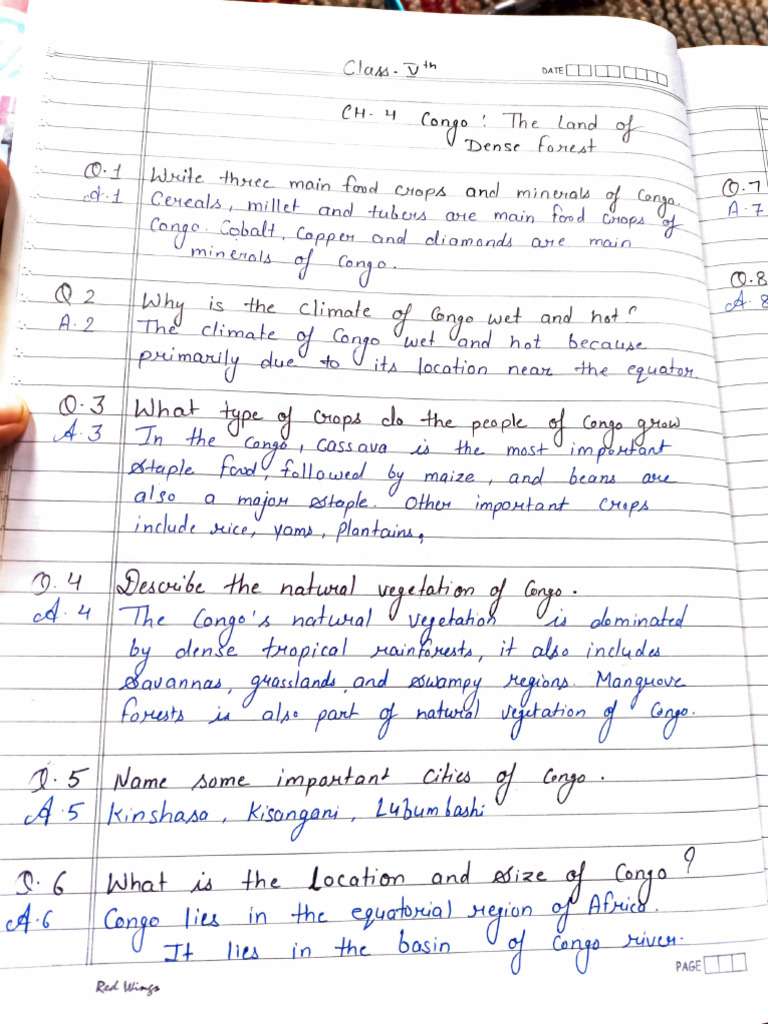 Class-Vth
DATE
CH-4 Congo: The Land of
Dense Forest
Q.1 Write three main food crops and minerals of Congo.
A.1 Cereals, millet and tubers are main food crops of
Congo. Cobalt, Copper and diamonds are main
minerals of Congo.
Q 2 Why is the climate of Congo wet and hot?
A.2 The climate of Congo wet and hot because
primarily due to its location near the equator.
Q.3 What type of crops do the people of Congo grow
A.3 In the Congo, Cassava is the most important
staple food, followed by maize, and beans are
also a major staple. Other important crops
include rice, yams, plantains,
Q.4 Describe the natural vegetation of Congo.
A.4 The Congo's natural vegetation is dominated
by dense tropical rainforests, it also includes
Savannas, grasslands, and swampy regions. Mangrove
forests is also part of natural vegetation of Congo.
Q.5 Name some important cities of Congo.
A.5 Kinshasa, Kisangani, Lubumbashi
Q.6 What is the location and size of Congo?
A.6 Congo lies in the equatorial region of Africa.
It lies in the basin of Congo river.
PAGE
Red Wings
Q.7
A.7
Q.8
A.8